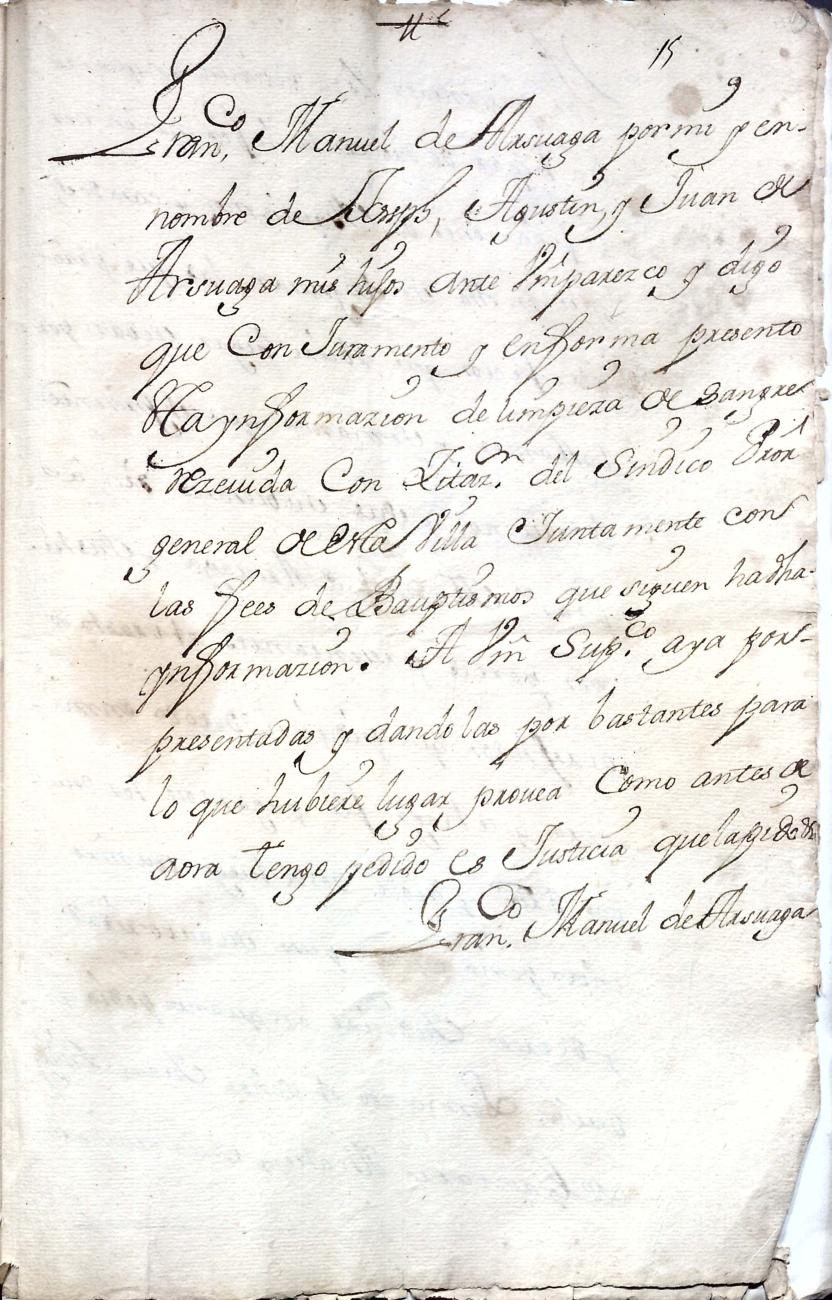 15
Fran.co Manuel de Arsuaga por mi y en
nombre de Joseph, Agustin, y Juan de
Arsuaga mis hijos ante Vm parezco y digo
que Con Juramento y en forma presento
esta ynformazion de limpieza de sangre
rezeuida Con Zitaz.on del Sindico Pror
general de esta Villa Juntamente con
las fees de Bauptismos que siguen ha dha
ynformazion. A Vm Sup.co aya por
presentadas y dandolas por bastantes para
lo que hubiere lugar prouea Como antes de
aora tengo pedido es Justicia que la pido &
Fran.co Manuel de Arsuaga